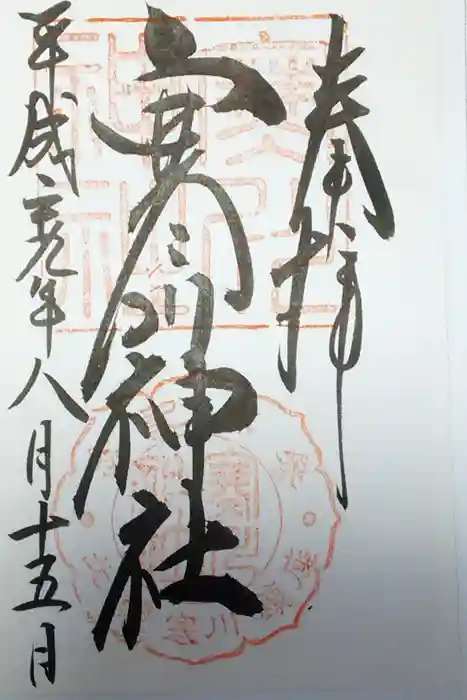 奉拝
寒川神社
平成二十九年八月十五日